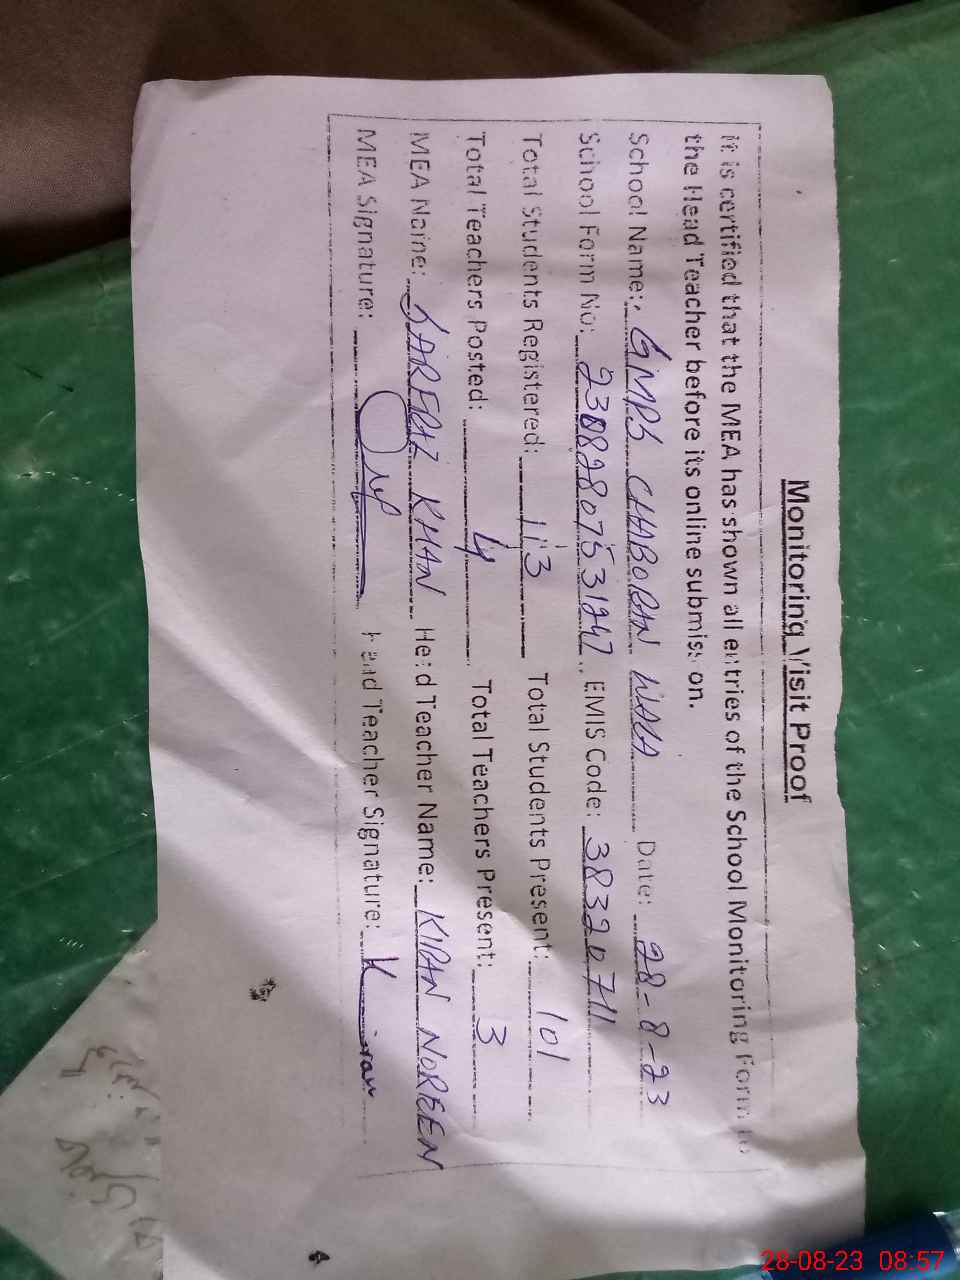 Monitoring Visit Proof
It is certified that the MEA has shown all entries of the School Monitoring Form to
the Head Teacher before its online submission.
School Name: GMPS CHABORAN WALA Date: 28-8-23
School Form No: 23082807531247 EMIS Code: 38320711
Total Students Registered: 113 Total Students Present: 101
Total Teachers Posted: 4 Total Teachers Present: 3
MEA Name: SARFRAZ KHAN Head Teacher Name: KIRAN NOREEN
MEA Signature: Head Teacher Signature: Kiran
28-08-23 08:57